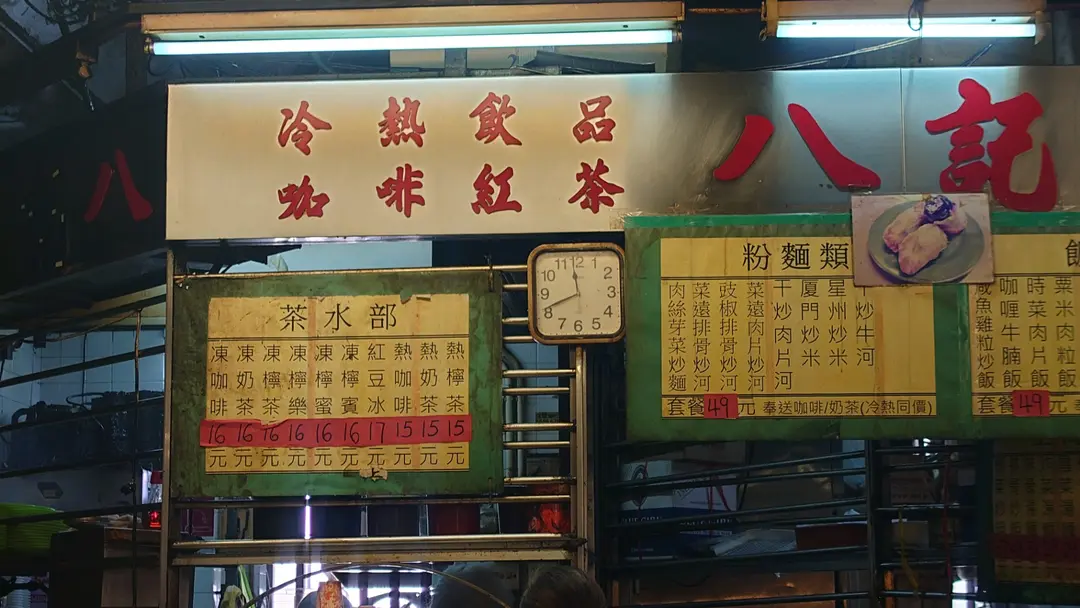 冷熱飲品
咖啡紅茶
八記
八
茶水部
熱檸茶15元
熱奶茶15元
熱咖啡15元
紅豆冰17元
凍檸賓16元
凍檸蜜16元
凍檸樂16元
凍檸茶16元
凍奶茶16元
凍咖啡16元
上
12 1 2 3 4 5 6 7 8 9 10 11
粉麵類
炒牛河
星州炒米
廈門炒米
干炒肉片河
菜遠肉片炒河
豉椒排骨炒河
菜遠排骨炒河
肉絲芽菜炒麵
套餐49元 奉送咖啡/奶茶(冷熱同價)
飯
粟米肉粒飯
時菜肉片飯
咖喱牛腩飯
咸魚雞粒炒飯
套餐49元